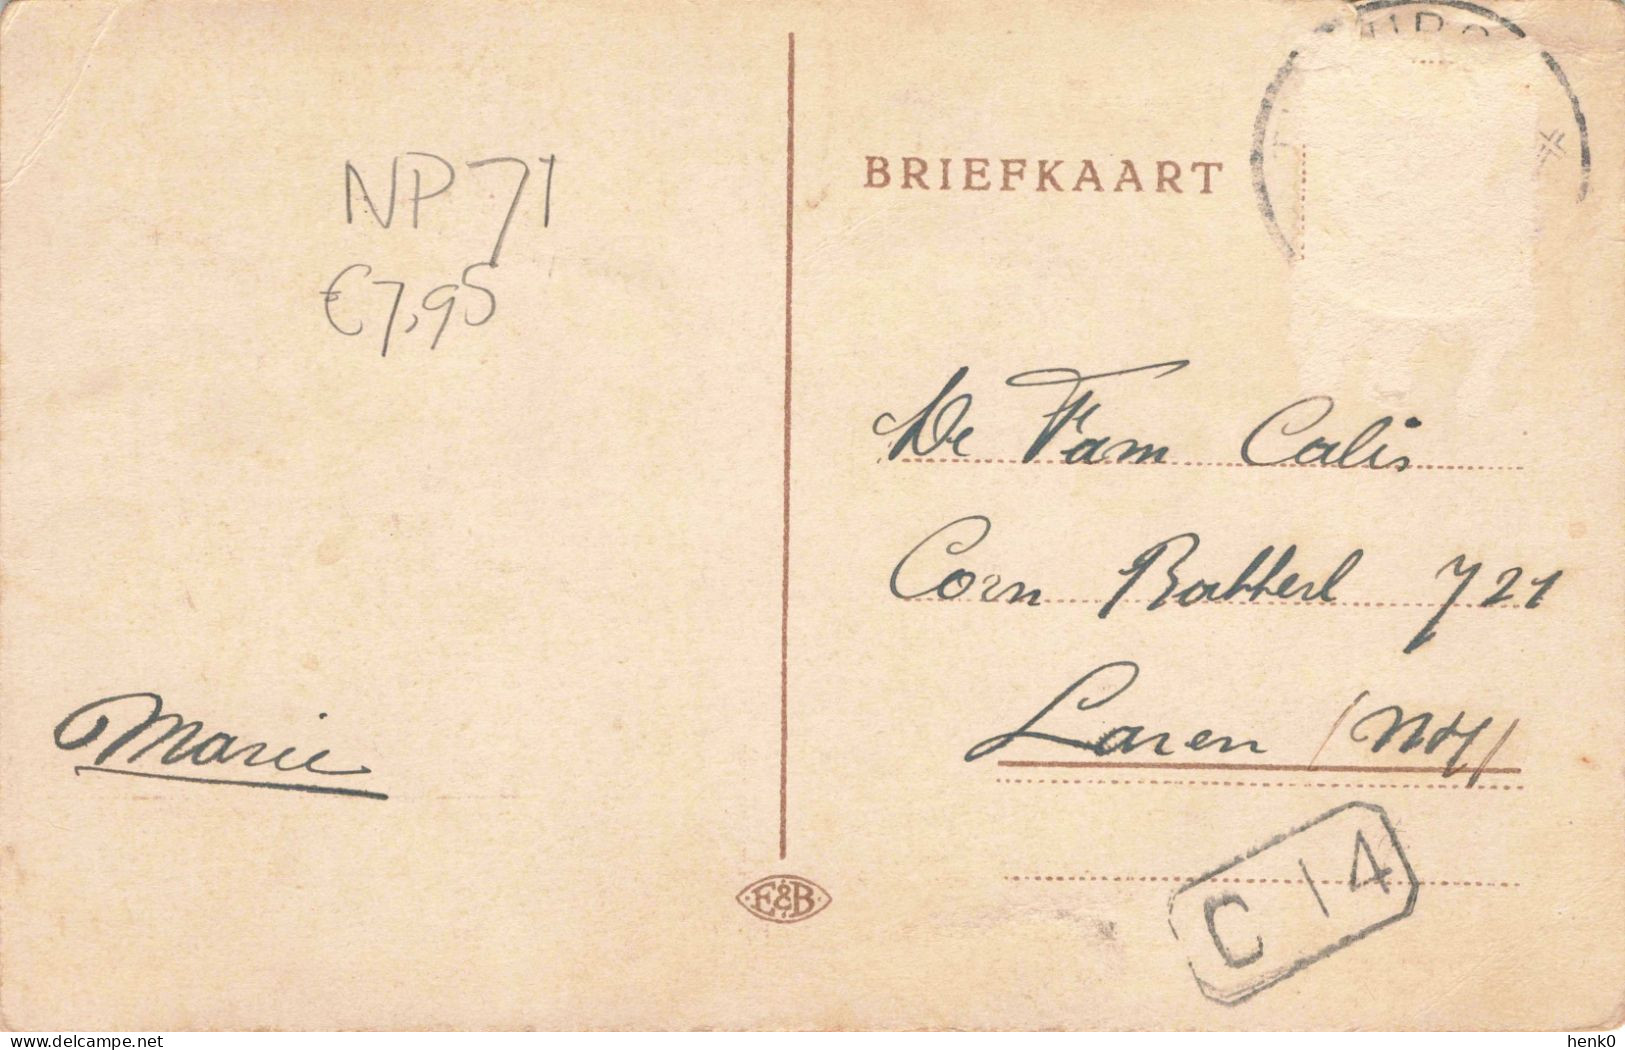 NP 71
€7,95
BRIEFKAART
De Fam Calis
Corn Bakkerl 721
Laren (NH)
Marie
E&B
C 14
delcampe.net
henk0